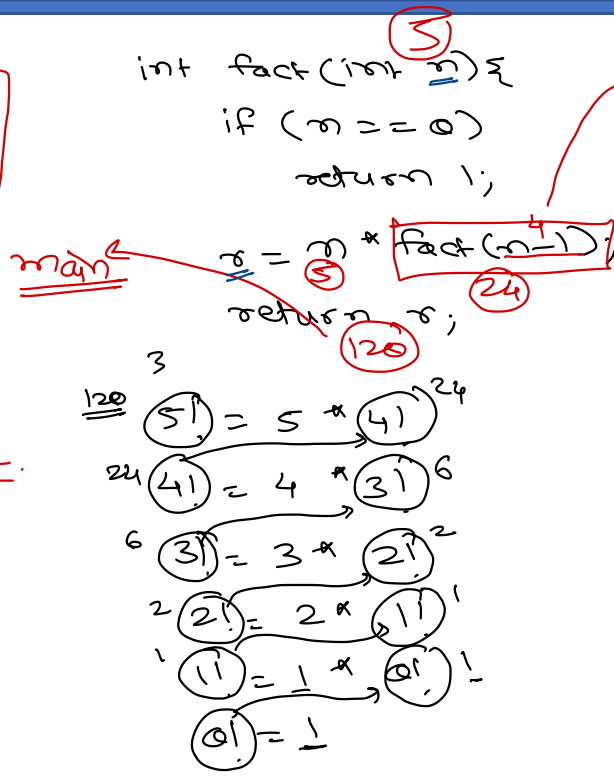 5
int fact(int n){
if (n == 0)
return 1;
4
main r = n * fact(n-1);
5 24
return r;
120
3
120 5! = 5 * 4! 24
24 4! = 4 * 3! 6
6 3! = 3 * 2! 2
2 2! = 2 * 1! 1
1 1! = 1 * 0! 1
0! = 1